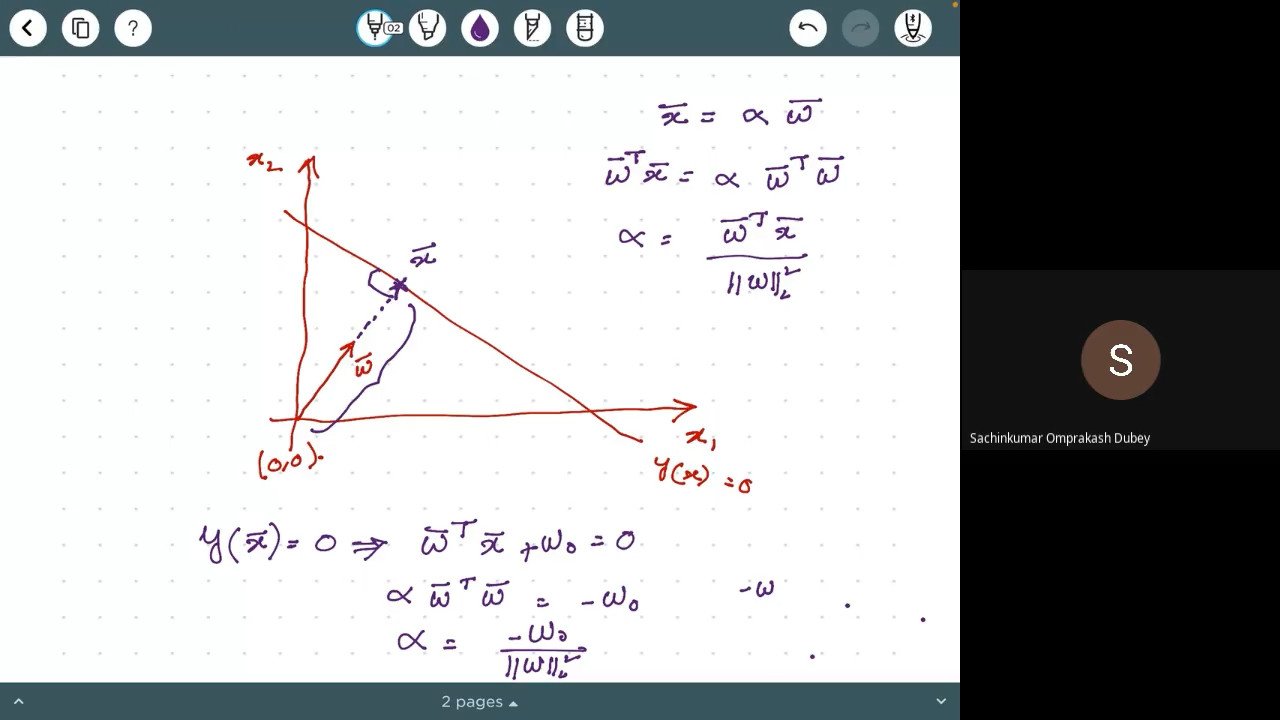 02
x̄ = α w̄
w̄ᵀx̄ = α w̄ᵀ w̄
α = w̄ᵀ x̄ / ||w||₂²
x₂
x̄
w̄
x₁
(0,0)
y(x) = 0
y(x̄) = 0 ⇒ w̄ᵀ x̄ + w₀ = 0
α w̄ᵀ w̄ = - w₀
-w
α = -w₀ / ||w||₂²
S
Sachinkumar Omprakash Dubey
2 pages